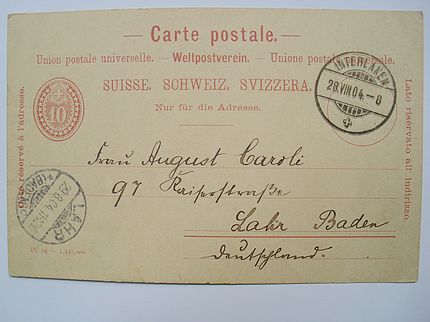 Carte postale.
Union postale universelle. — Weltpostverein. — Unione postale universale.
SUISSE. SCHWEIZ. SVIZZERA.
Nur für die Adresse.
Côté réservé à l'adresse.
Lato riservato all indirizzo.
10
INTERLAKEN
29.VIII.04.-8
Frau August Caroli
97 Kaiserstraße
Lahr Baden
Deutschland.
LAHR
(BADEN)
29.8.04
IV 04 — 1,440,000